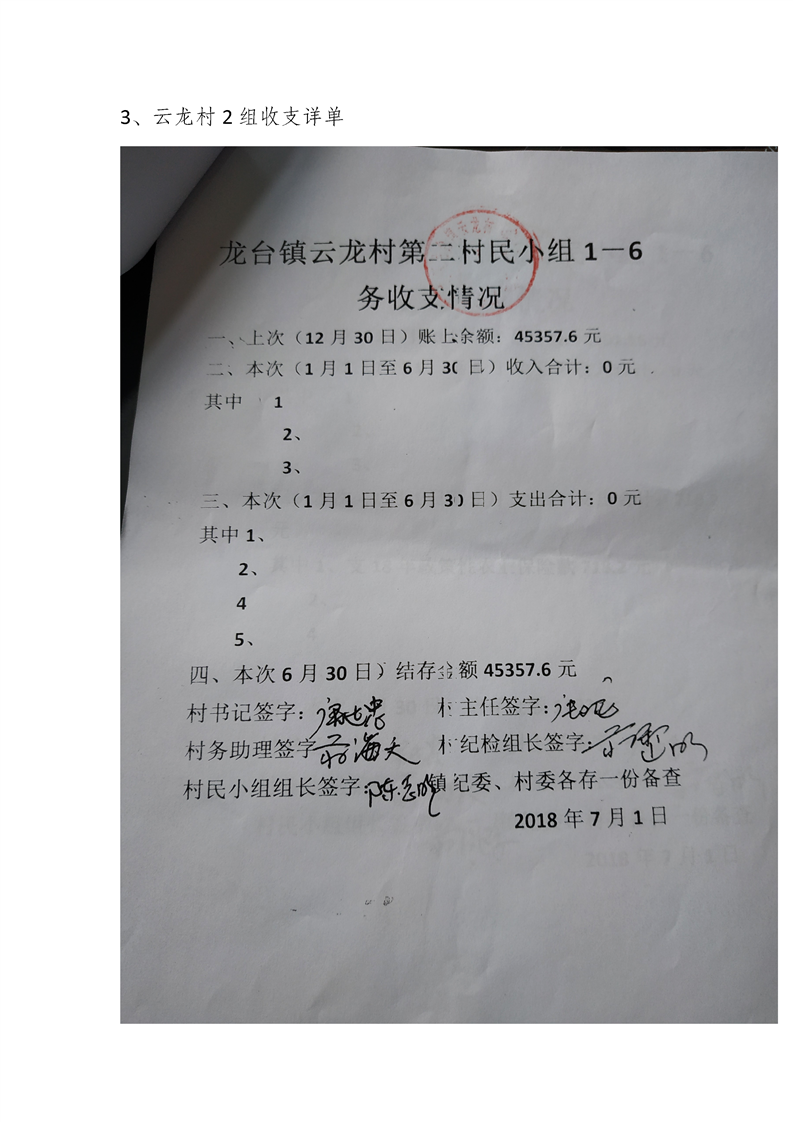 3、云龙村 2 组收支详单
龙台镇云龙村第二村民小组 1－6
务收支情况
一、上次（12 月 30 日）账上余额：45357.6 元
二、本次（1 月 1 日至 6 月 30 日）收入合计：0 元
其中 1
2、
3、
三、本次（1 月 1 日至 6 月 30 日）支出合计：0 元
其中 1、
2、
4
5、
四、本次 6 月 30 日）结存金额 45357.6 元
村书记签字： 村主任签字：
村务助理签字 村纪检组长签字：
村民小组组长签字： 镇纪委、村委各存一份备查
2018 年 7 月 1 日